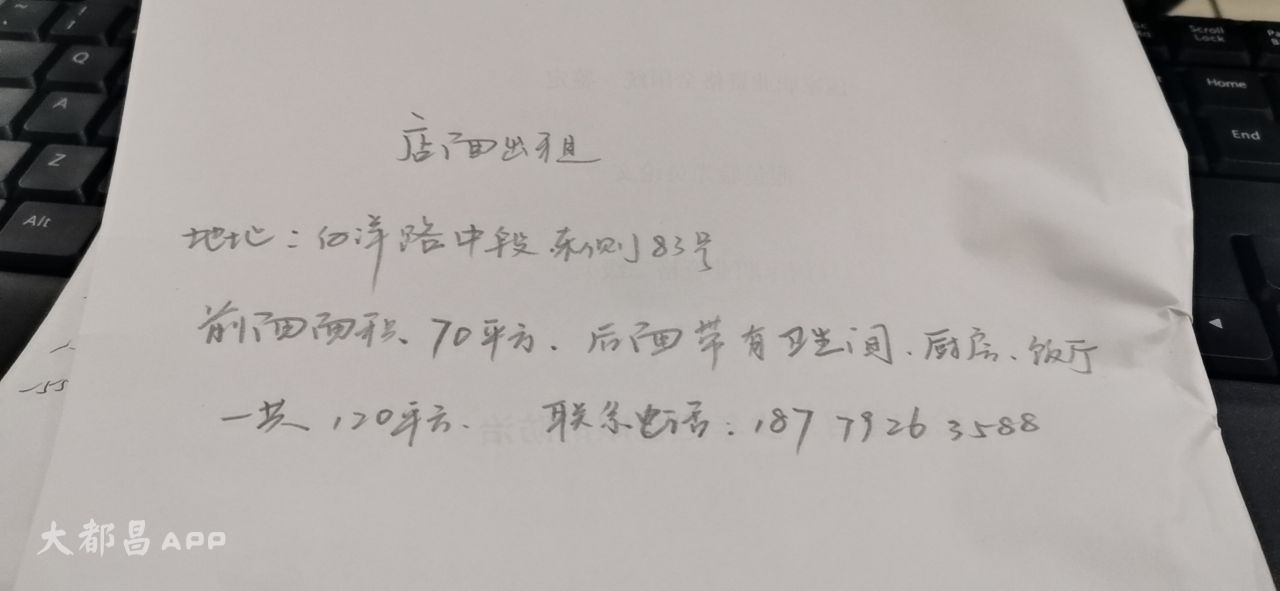 店面出租
地址：白洋路中段东侧83号
前面面积、70平方、后面带有卫生间、厨房、饭厅
一共120平方、 联系电话：18779263588
大都昌APP
Q
A
Z
Alt
Scroll
Lock
Home
End